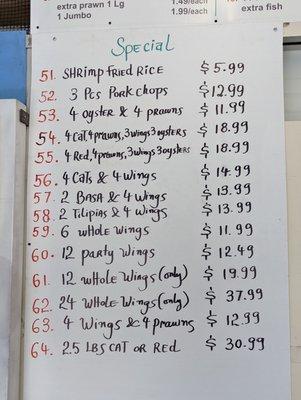 extra prawn 1 Lg 1.49/each
1 Jumbo 1.99/each
extra fish
Special
51. SHRimp FRied RiCE $5.99
52. 3 PCs PoRk Chops $12.99
53. 4 oysteR & 4 pRAwns $11.99
54. 4 Cat,4 prawns,3wings 3oysters $18.99
55. 4 Red,4 prawns,3wings 3oysters $18.99
56. 4 CATs & 4 wings $14.99
57. 2 BASA & 4 Wings $13.99
58. 2 Tilipias & 4 Wings $13.99
59. 6 wHole Wings $11.99
60. 12 party Wings $12.49
61. 12 Whole Wings (only) $19.99
62. 24 Whole Wings (only) $37.99
63. 4 Wings & 4 pRawns $12.99
64. 2.5 LBS CAT OR REd $30.99